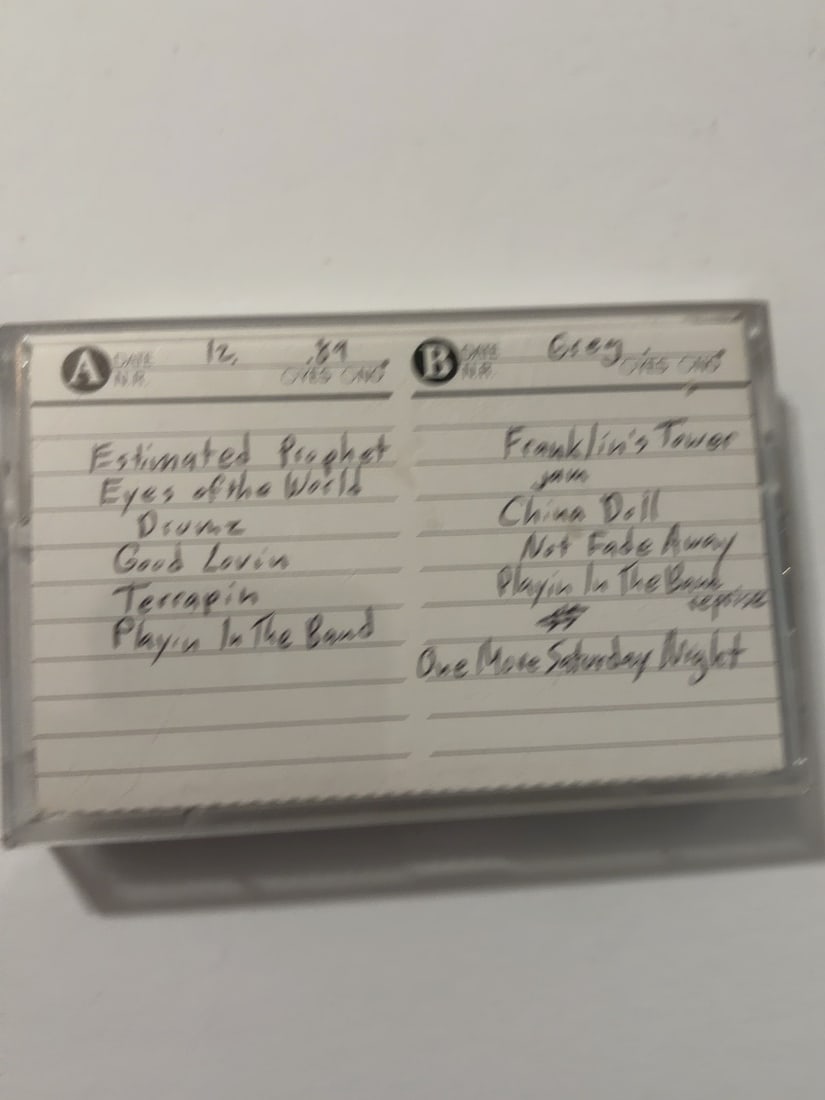 A DATE 12, .89
N.R. YES NO
Estimated Prophet
Eyes of the World
Drumz
Good Lovin
Terrapin
Playin In The Band
B DATE Greg
N.R. YES NO
Franklin's Tower
Jam
China Doll
Not Fade Away
Playin In The Band
reprise
One More Saturday Night